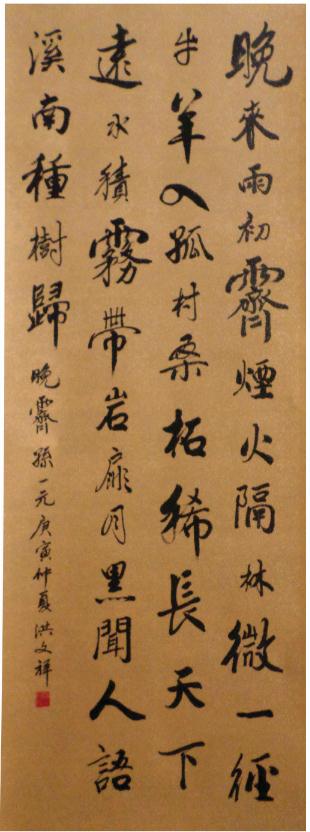 晚來雨初霽煙火隔林微一徑
牛羊入孤村桑柘稀長天下
遠水積霧帶岩扉月黑聞人語
溪南種樹歸
晚霽孫一元庚寅仲夏洪文祥